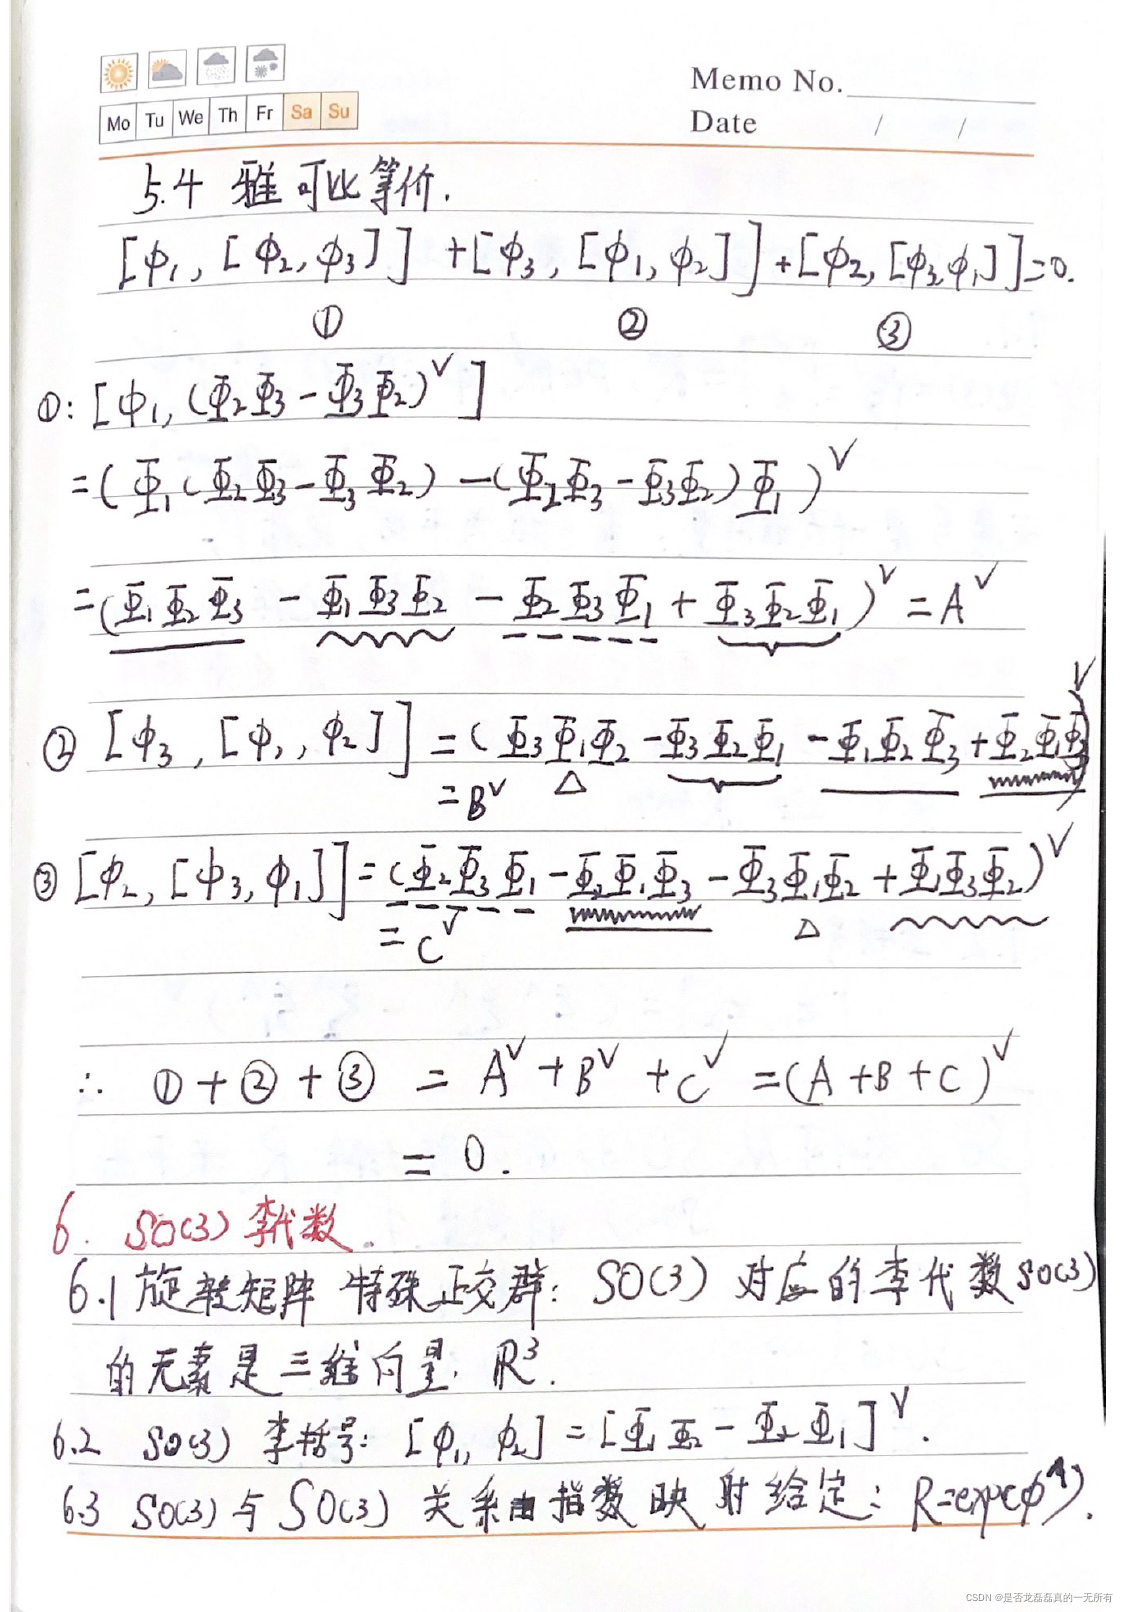 Mo Tu We Th Fr Sa Su
Memo No.
Date / /
5.4 雅可比等价.
[ϕ₁, [ϕ₂, ϕ₃]] + [ϕ₃, [ϕ₁, ϕ₂]] + [ϕ₂, [ϕ₃, ϕ₁]] = 0.
① ② ③
①: [ϕ₁, (Φ₂Φ₃ - Φ₃Φ₂)^∨]
= (Φ₁(Φ₂Φ₃ - Φ₃Φ₂) - (Φ₂Φ₃ - Φ₃Φ₂)Φ₁)^∨
= (Φ₁Φ₂Φ₃ - Φ₁Φ₃Φ₂ - Φ₂Φ₃Φ₁ + Φ₃Φ₂Φ₁)^∨ = A^∨
② [ϕ₃, [ϕ₁, ϕ₂]] = (Φ₃Φ₁Φ₂ - Φ₃Φ₂Φ₁ - Φ₁Φ₂Φ₃ + Φ₂Φ₁Φ₃)^∨
= B^∨
③ [ϕ₂, [ϕ₃, ϕ₁]] = (Φ₂Φ₃Φ₁ - Φ₂Φ₁Φ₃ - Φ₃Φ₁Φ₂ + Φ₁Φ₃Φ₂)^∨
= C^∨
∴ ① + ② + ③ = A^∨ + B^∨ + C^∨ = (A + B + C)^∨
= 0.
6. SO(3) 李代数.
6.1 旋转矩阵 特殊正交群: SO(3) 对应的李代数 so(3)
的元素是三维向量. R³.
6.2 so(3) 李括号: [ϕ₁, ϕ₂] = [Φ₁Φ₂ - Φ₂Φ₁]^∨.
6.3 so(3) 与 SO(3) 关系由指数映射给定: R = exp(ϕ^∧).
CSDN @是否龙磊磊真的一无所有